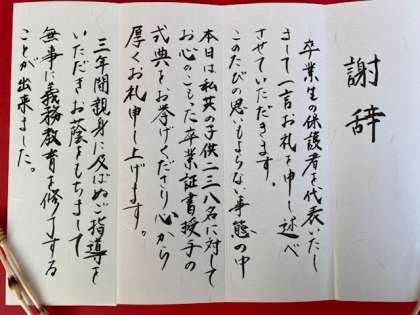 謝辞
卒業生の保護者を代表いたし
まして一言お礼を申し述べ
させていただきます。
このたびの思いもよらない事態の中
本日は私共の子供二三八名に対して
お心のこもった卒業証書授手の
式典をお挙げくださり心から
厚くお礼申し上げます。
三年間親身に及ばぬご指導を
いただきお蔭をもちまして
無事に義務教育を修了する
ことが出来ました。